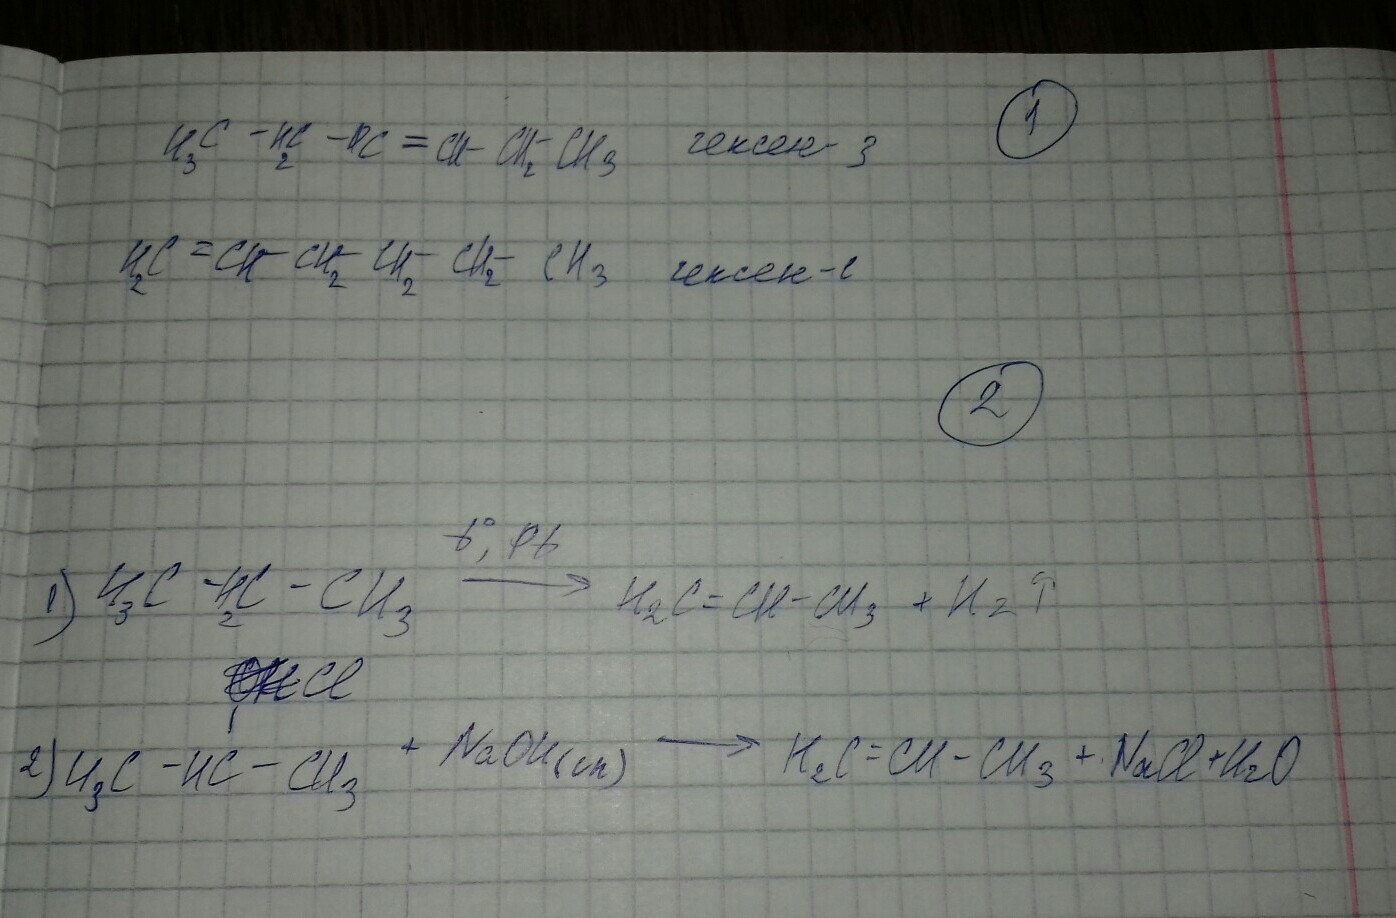 1
H3C - H2C - HC = CH - CH2 - CH3 гексен-3
H2C = CH - CH2 - CH2 - CH2 - CH3 гексен-1
2
t°, Pt
1) H3C - H2C - CH3 → H2C = CH - CH3 + H2↑
Cl
2) H3C - HC - CH3 + NaOH(сп) → H2C = CH - CH3 + NaCl + H2O